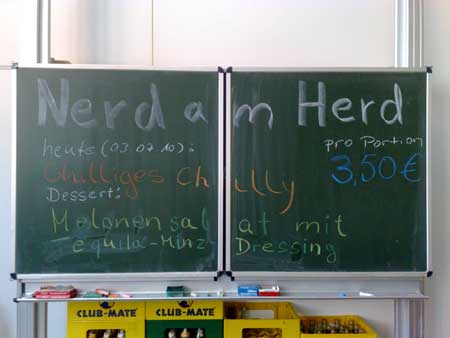 Nerd am Herd
heute (03.07.10):
pro Portion
Chilliges Chilly
3,50€
Dessert:
Melonensalat mit
equila-Minz Dressing
CLUB-MATE CLUB-MATE